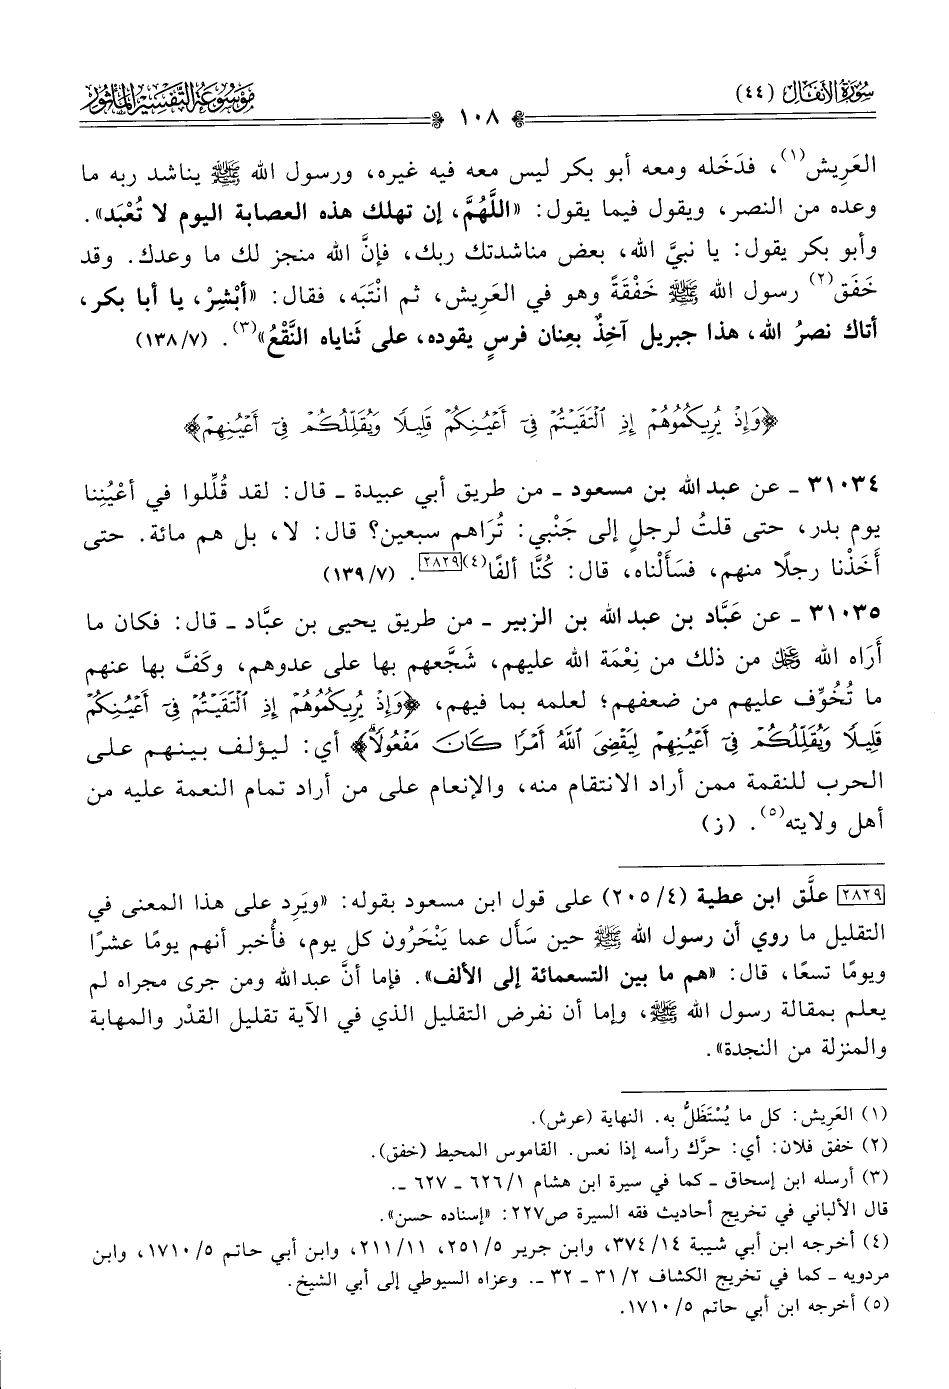 سُورَةُ الأَنفَال (٤٤)
١٠٨
مَوْسُوعَة التَّفْسِير المَأثُور
العَرِيش(١)، فدَخَله ومعه أبو بكر ليس معه فيه غيره، ورسول الله ﷺ يناشد ربه ما
وعده من النصر، ويقول فيما يقول: «اللَّهُمَّ، إن تهلك هذه العصابة اليوم لا تُعْبَد».
وأبو بكر يقول: يا نبيَّ الله، بعض مناشدتك ربك، فإنَّ الله منجز لك ما وعدك. وقد
خَفَق(٢) رسول الله ﷺ خَفْقَةً وهو في العَرِيش، ثم انْتَبَه، فقال: «أَبْشِرْ، يا أبا بكر،
أتاك نصرُ الله، هذا جبريل آخِذٌ بعِنان فرسٍ يقوده، على ثَناياه النَّقْعُ»(٣). (١٣٨/٧)
﴿وَإِذْ يُرِيكُمُوهُمْ إِذِ الْتَقَيْتُمْ فِىٓ أَعْيُنِكُمْ قَلِيلًا وَيُقَلِّلُكُمْ فِىٓ أَعْيُنِهِمْ﴾
٣١٠٣٤ ـ عن عبد الله بن مسعود ـ من طريق أبي عبيدة ـ قال: لقد قُلِّلوا في أعْيُنِنا
يوم بدر، حتى قلتُ لرجلٍ إلى جَنْبي: تُرَاهم سبعين؟ قال: لا، بل هم مائة. حتى
أَخَذْنا رجلًا منهم، فسَأَلْناه، قال: كُنَّا ألفًا(٤)[٢٨٢٩]. (١٣٩/٧)
٣١٠٣٥ ـ عن عَبَّاد بن عبد الله بن الزبير ـ من طريق يحيى بن عبَّاد ـ قال: فكان ما
أَرَاه الله ﷿ من ذلك من نِعْمَة الله عليهم، شَجَّعهم بها على عدوهم، وكَفَّ بها عنهم
ما تُخُوِّف عليهم من ضعفهم؛ لعلمه بما فيهم، ﴿وَإِذْ يُرِيكُمُوهُمْ إِذِ الْتَقَيْتُمْ فِىٓ أَعْيُنِكُمْ
قَلِيلًا وَيُقَلِّلُكُمْ فِىٓ أَعْيُنِهِمْ لِيَقْضِىَ اللَّهُ أَمْرًا كَانَ مَفْعُولًاۗ﴾ أي: ليؤلف بينهم على
الحرب للنقمة ممن أراد الانتقام منه، والإنعام على من أراد تمام النعمة عليه من
أهل ولايته(٥). (ز)
[٢٨٢٩] علَّق ابن عطية (٢٠٥/٤) على قول ابن مسعود بقوله: «ويَرِد على هذا المعنى في
التقليل ما روي أن رسول الله ﷺ حين سَأَل عما يَنْحَرُون كل يوم، فأُخبر أنهم يومًا عشرًا
ويومًا تسعًا، قال: «هم ما بين التسعمائة إلى الألف». فإما أنَّ عبد الله ومن جرى مجراه لم
يعلم بمقالة رسول الله ﷺ، وإما أن نفرض التقليل الذي في الآية تقليل القدْر والمهابة
والمنزلة من النجدة».
(١) العَرِيش: كل ما يُسْتَظَلُّ به. النهاية (عرش).
(٢) خفق فلان: أي: حرَّك رأسه إذا نعس. القاموس المحيط (خفق).
(٣) أرسله ابن إسحاق ـ كما في سيرة ابن هشام ٦٢٦/١ ـ ٦٢٧ ـ.
قال الألباني في تخريج أحاديث فقه السيرة ص٢٢٧: «إسناده حسن».
(٤) أخرجه ابن أبي شيبة ٣٧٤/١٤، وابن جرير ٢٥١/٥، ٢١١/١١، وابن أبي حاتم ١٧١٠/٥، وابن
مردويه ـ كما في تخريج الكشاف ٣١/٢ ـ ٣٢ ـ. وعزاه السيوطي إلى أبي الشيخ.
(٥) أخرجه ابن أبي حاتم ١٧١٠/٥.